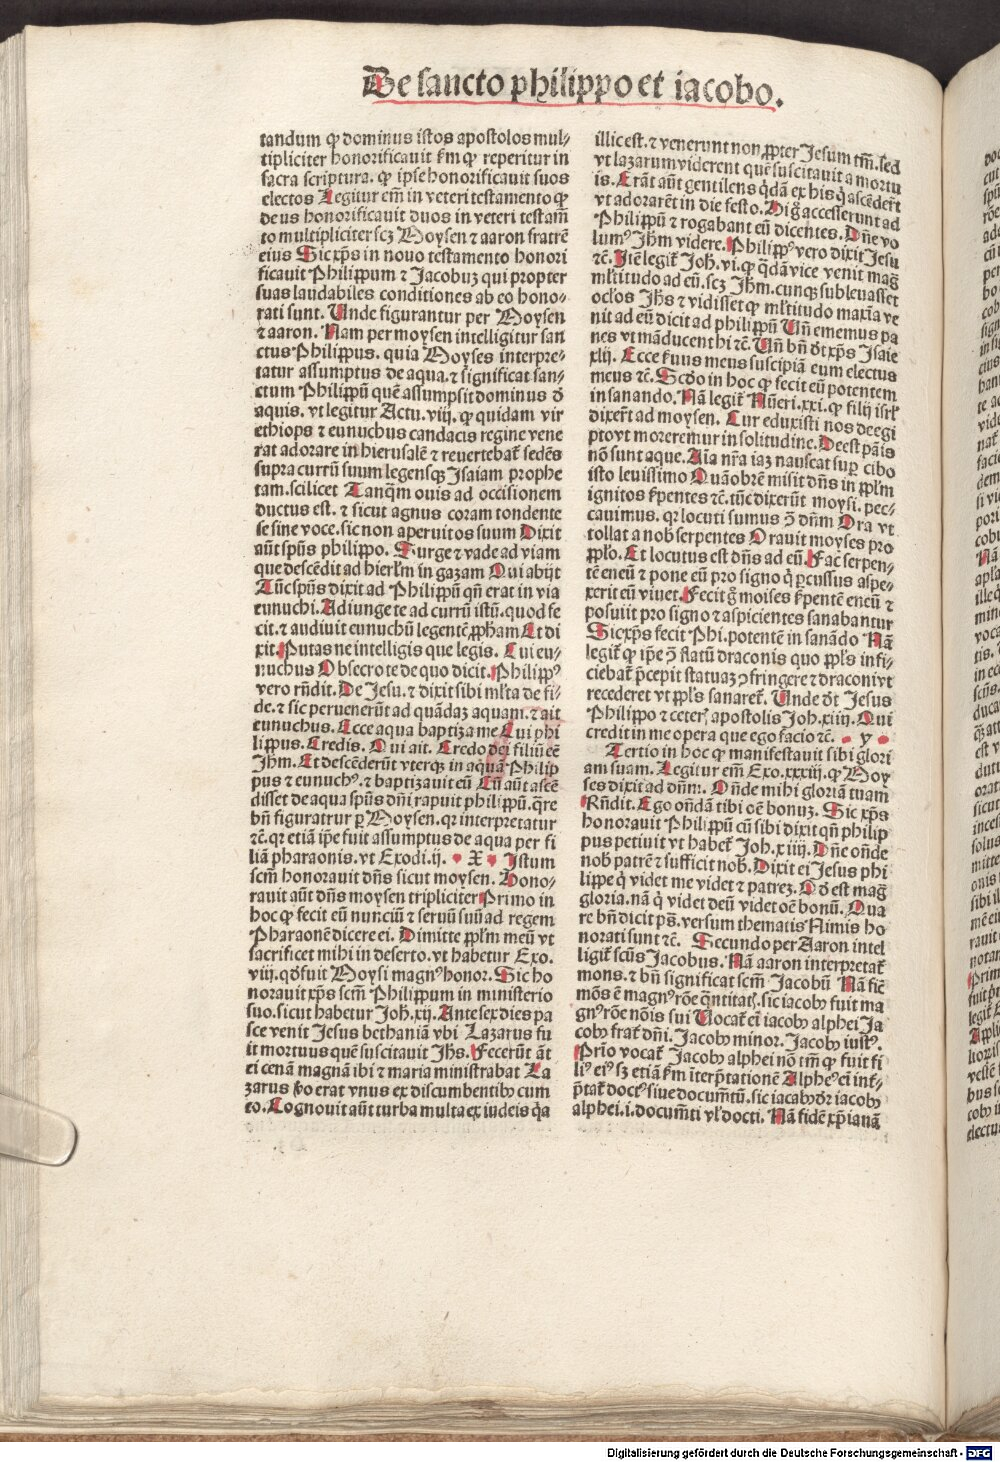 De sancto philippo et iacobo.
tandum qꝫ dominus istos apostolos mul⸗
tipliciter honorificauit ẜm qꝫ reperitur in
sacra scriptura. qꝫ ipse honorificauit suos
electos Legitur em̄ in veteri testamento qꝫ
deus honorificauit duos in veteri testam̄
to multipliciter scꝫ Moysen ⁊ aaron fratrē
eius Sic xp̄s in nouo testamento honori
ficauit Philippum ⁊ Jacobuꝫ qui propter
suas laudabiles conditiones ab eo hono⸗
rati sunt. Unde figurantur per Moysen
⁊ aaron. Nam per moysen intelligitur san
ctus Philippus. quia Moyses interpre⸗
tatur assumptus de aqua. ⁊ significat san⸗
ctum Philippū quē assumpsit dominus ð
aquis. vt legitur Actu. viij. qꝫ quidam vir
ethiops ⁊ eunuchus candacis regine vene
rat adorare in hierusalē ⁊ reuertebat᷑ sedēs
supra currū suum legensqꝫ Isaiam prophe
tam. scilicet Tanqm̄ ouis ad occisionem
ductus est. ⁊ sicut agnus coram tondente
se sine voce. sic non aperuit os suum Dixit
aūt spūs philippo. Surge ⁊ vade ad viam
que descēdit ad hierlm̄ in gazam Qui abijt
Tūc spūs dixit ad Philippū qn̄ erat in via
eunuchi. Adiunge te ad currū istū. quod fe
cit. ⁊ audiuit eunuchū legentē ꝓpham Et di
xit. Putas ne intelligis que legis. Cui eu⸗
nuchus Obsecro te de quo dicit. Philippꝰ
vero rn̄dit. De Jesu. ⁊ dixit sibi ml̄ta de fi⸗
de. ⁊ sic peruenerūt ad quādaꝫ aquam. ⁊ ait
eunuchus. Ecce aqua baptiza me Cui phi
lippus. Credis. Qui ait. Credo deū filiū eē
Jhm̄. Et descēderūt vterqꝫ in aquā Philip
pus ⁊ eunuchꝰ. ⁊ baptizauit eū Cū aūt ascē
disset de aqua spūs dn̄i rapuit philippū. q̄re
bn̄ figuratrur ꝑ Moysen. qꝛ interpretatur
⁊c̄. qꝛ etiā ip̄e fuit assumptus de aqua per fi
liā pharaonis. vt Exodi. ij. • X • Istum
scm̄ honorauit dn̄s sicut moysen. Hono⸗
rauit aūt dn̄s moysen tripliciter Primo in
hoc qꝫ fecit eū nunciū ⁊ seruū suū ad regem
Pharaonē dicere ei. Dimitte ꝓplm̄ meū vt
sacrificet mihi in deserto. vt habetur Exo.
viij. qð fuit Moysi magnꝰ honor. Sic ho
norauit xp̄s scm̄ Philippum in ministerio
suo. sicut habetur Joh̄. xij. Ante sex dies pa
sce venit Jesus bethaniā vbi Lazarus fu
it mortuus quē suscitauit Jh̄s. Fecerūt āt
ei cenam magnā ibi ⁊ maria ministrabat La
zarus vo erat vnus ex discumbentibꝫ cum
eo. Cognouit aūt turba multa ex iudeis qꝛ
illic est. ⁊ venerunt non ꝓpter Jesum tm̄. sed
vt lazarum viderent quē suscitauit a mortu
is. Erāt aūt gentilens qdā ex his q ascēder̄t
vt adorarēt in die festo. Hi gͦ accesserunt ad
Philippū ⁊ rogabant eū dicentes. Dn̄e vo
lumꝰ Jhm̄ videre. Philippꝰ vero dixit Jesu
⁊c̄. Itē legit᷑ Joh̄. vi. qꝫ qdā vice venit mag
ml̄titudo ad eū. scꝫ Jhm̄. cunqꝫ subleuasset
oclōs Jh̄s ⁊ vidisset qꝫ ml̄titudo maxīa ve
nit ad eū dicit ad philippū Un̄ ememus pa
nes vt māducent hi ⁊c̄. Un̄ bn̄ dr̄ xp̄s Isaie
xlij. Ecce ẜuus meus suscipiā eum electus
meus ⁊c̄. Scd̄o in hoc qꝫ fecit eū potentem
in sanando. Nā legit᷑ Nūeri. xxi. qꝫ filij isrl̄
dixer̄t ad moysen. Cur eduxisti nos de egi
pto vt moreremur in solitudine. Deest panis
nō sunt aque. Aīa nr̄a iaꝫ nauseat suꝑ cibo
isto leuissimo Quāobrē misit dn̄s in ꝓplm̄
ignitos ẜpentes ⁊c̄. tūc dixerūt moysi. pec⸗
cauimus. qꝛ locuti sumus ꝯ dn̄m Ora vt
tollat a nob̄ serpentes Orauit moyses pro
ꝓplo. Et locutus est dn̄s ad eū. Fac serpen⸗
tē eneū ⁊ pone eū pro signo q ꝑcussus aspe⸗
xerit eū viuet. Fecit gͦ moises ẜpentē eneū ⁊
posuit pro signo ⁊ aspicientes sanabantur
Sic xp̄s fecit Phi. potentē in sanādo Nā
legit᷑ qꝫ ip̄e ꝯ flatū draconis quo ꝓpls infi⸗
ciebat᷑ p̄cepit statuaꝫ ꝯfringere ⁊ draconi vt
recederet vt ꝓpls sanaret᷑. Unde dr̄ Jesus
Philippo ⁊ ceteꝝ apostolis Joh̄. xiiij. Qui
credit in me opera que ego facio ⁊c̄. • y •
Tertio in hoc qꝫ manifestauit sibi glori
am suam. Legitur em̄ Exo. xxxiij. qꝫ Moy
ses dixit ad dn̄m. Ondē mihi gloriā tuam
Rn̄dit. Ego ondā tibi oē bonuꝫ. Sic xp̄s
honorauit Philippū cū sibi dixit qn̄ philip
pus petiuit vt habet᷑ Joh̄. xiiij. Dn̄e ondē
nob̄ patrē ⁊ sufficit nob̄. Dixit ei Jesus phi
lippe q videt me videt ⁊ patreꝫ. Dð est mag
gloria. nā q videt deū videt oē bonū. Qua
re bn̄ dicit ps̄. versum thematis Nimis ho
norati sunt ⁊c̄. Secundo per Aaron intel
ligit᷑ scūs Jacobus. Nā aaron interpretat᷑
mons. ⁊ bn̄ significat scm̄ Jacobū Nā sic
mōs ē magnꝰ rōe q̄ntitatꝭ. sic iacobꝰ fuit ma
gnꝰ rōe nōis sui Uocat᷑ ei iacobꝰ alphei Ja
cobꝰ frat᷑ dn̄i. Jacobꝰ minor. Jacobꝰ iustꝰ.
Prīo vocat᷑ Jacobꝰ alphei nō tm̄ qꝫ fuit fi
liꝰ eiꝰ sꝫ etiā ẜm īter̄ptationē Alpheꝰ ei int̄ꝓ
p̄tat᷑ doctꝰ siue documētū. sic iacobꝰ dr̄ iacobꝰ
alphei. i. documēti vl̓ docti. Nā fidē xp̄ianā
Digitalisierung gefördert durch die Deutsche Forschungsgemeinschaft - DFG